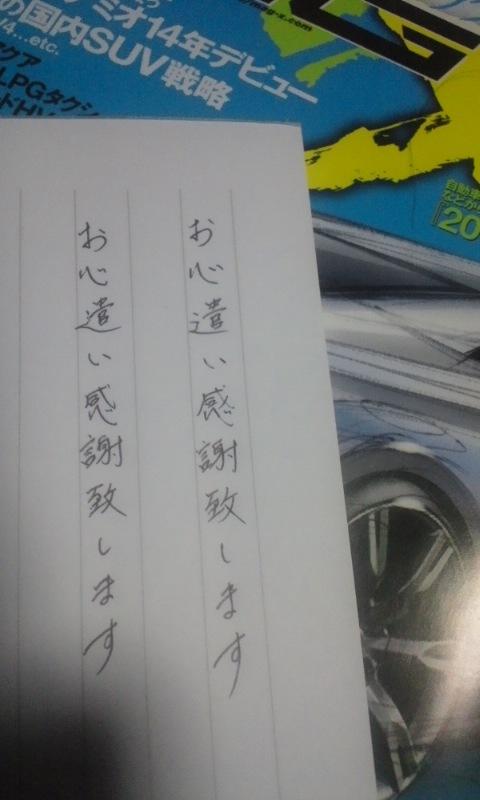 お心遣い感謝致します
お心遣い感謝致します
デミオ14年デビュー
の国内SUV戦略
/4...etc.
クア
LPGタクシ
ドHV
自動車
などが
『20